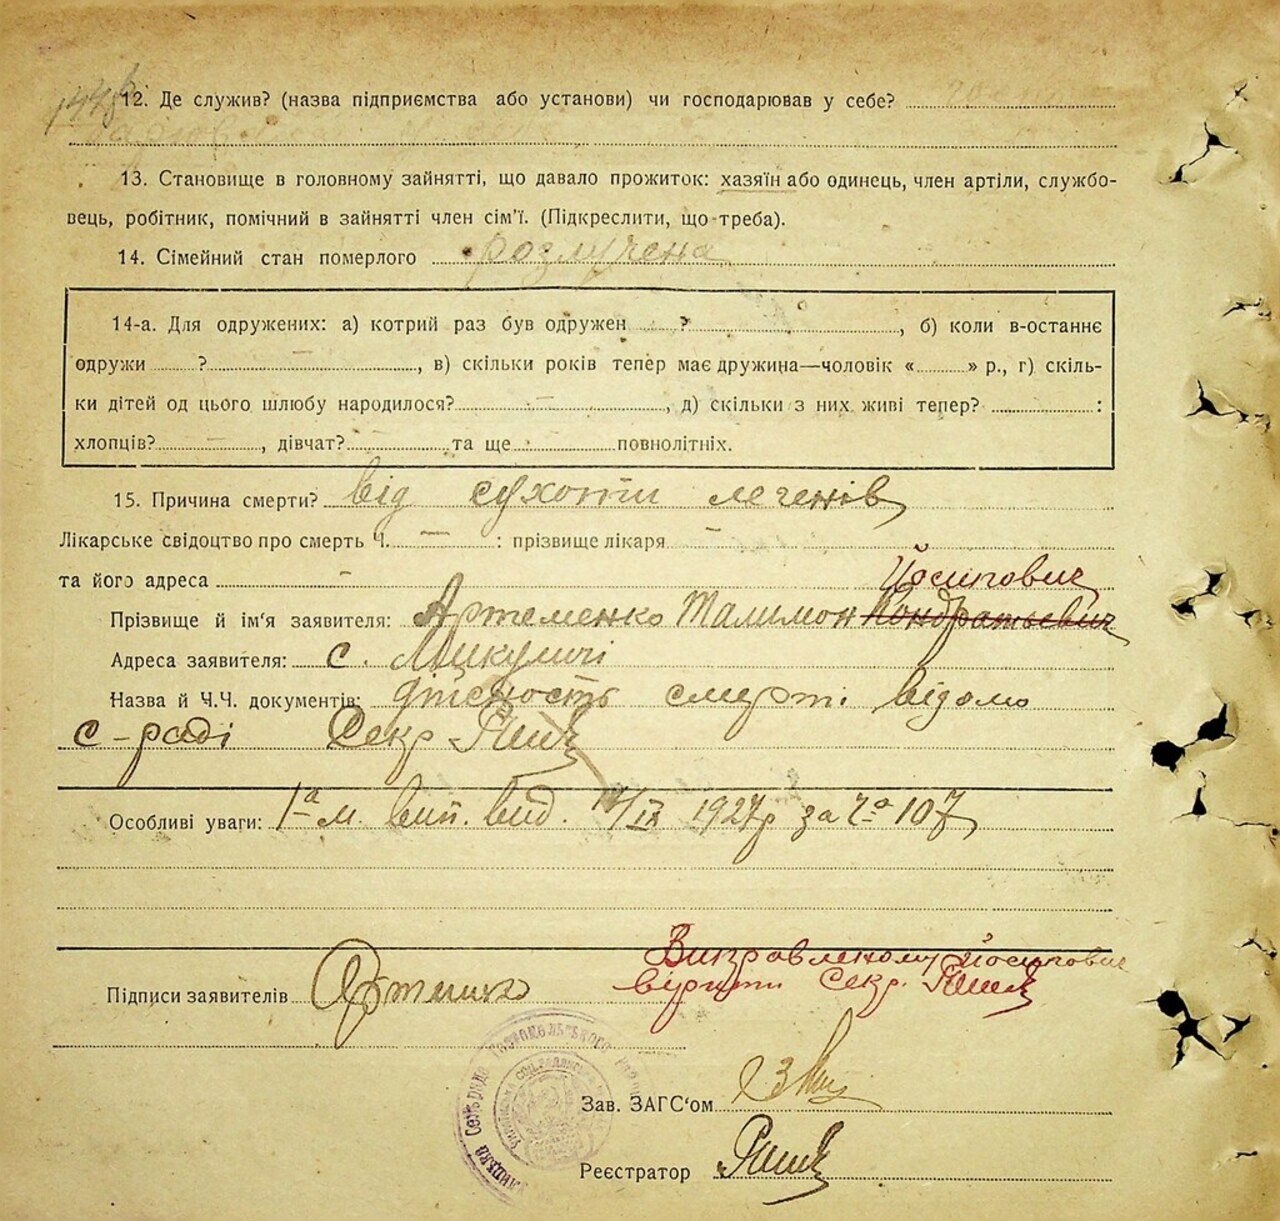 12. Де служив? (назва підприємства або установи) чи господарював у себе?
13. Становище в головному зайнятті, що давало прожиток: хазяїн або одинець, член артілі, службо-
вець, робітник, помічний в зайнятті член сім'ї. (Підкреслити, що треба).
14. Сімейний стан померлого розлучена
14-а. Для одружених: а) котрий раз був одружен ?, б) коли в-останнє
одружи ?, в) скільки років тепер має дружина—чоловік « » р., г) скіль-
ки дітей од цього шлюбу народилося? —, д) скільки з них живі тепер? :
хлопців? —, дівчат? та ще повнолітніх.
15. Причина смерти? від сухоти легенів
Лікарське свідоцтво про смерть Ч. — : прізвище лікаря —
та його адреса — Йосипович
Прізвище й ім'я заявителя: Артеменко Талимон Кондратьевич
Адреса заявителя: с. Микуличі
Назва й Ч.Ч. документів: дійсность смерті відомо
с-раді Секр.
Особливі уваги: 1а м. вип. вид. /IX 1927р за ч° 107
Виправленому Йосипович
Підписи заявителів Артеменко вірити Секр.
Зав. ЗАГС'ом
Реєстратор